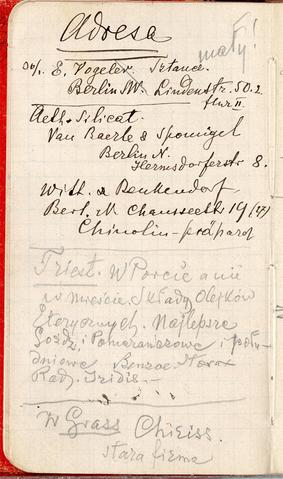 Adresa
mały!
E. Vogeler
Berlin SW. Lindenstr. 50.2
flur II
Aeth. Silicat.
Van Baerle & Sponnagel
Berlin N.
Hermsdorferstr 8.
With. & Benkendorf
Berl. N. Chausseestr 19
Chinolin-präparat
Triest. W Porcie a nie
w mieście. Składy Olejków
Eterycznych. Najlepsze
Goźdz. Pomeranzowe i połu-
dniowe Benzoe
Rad. Iridis.—
W Grass Chiriss.
stara firma